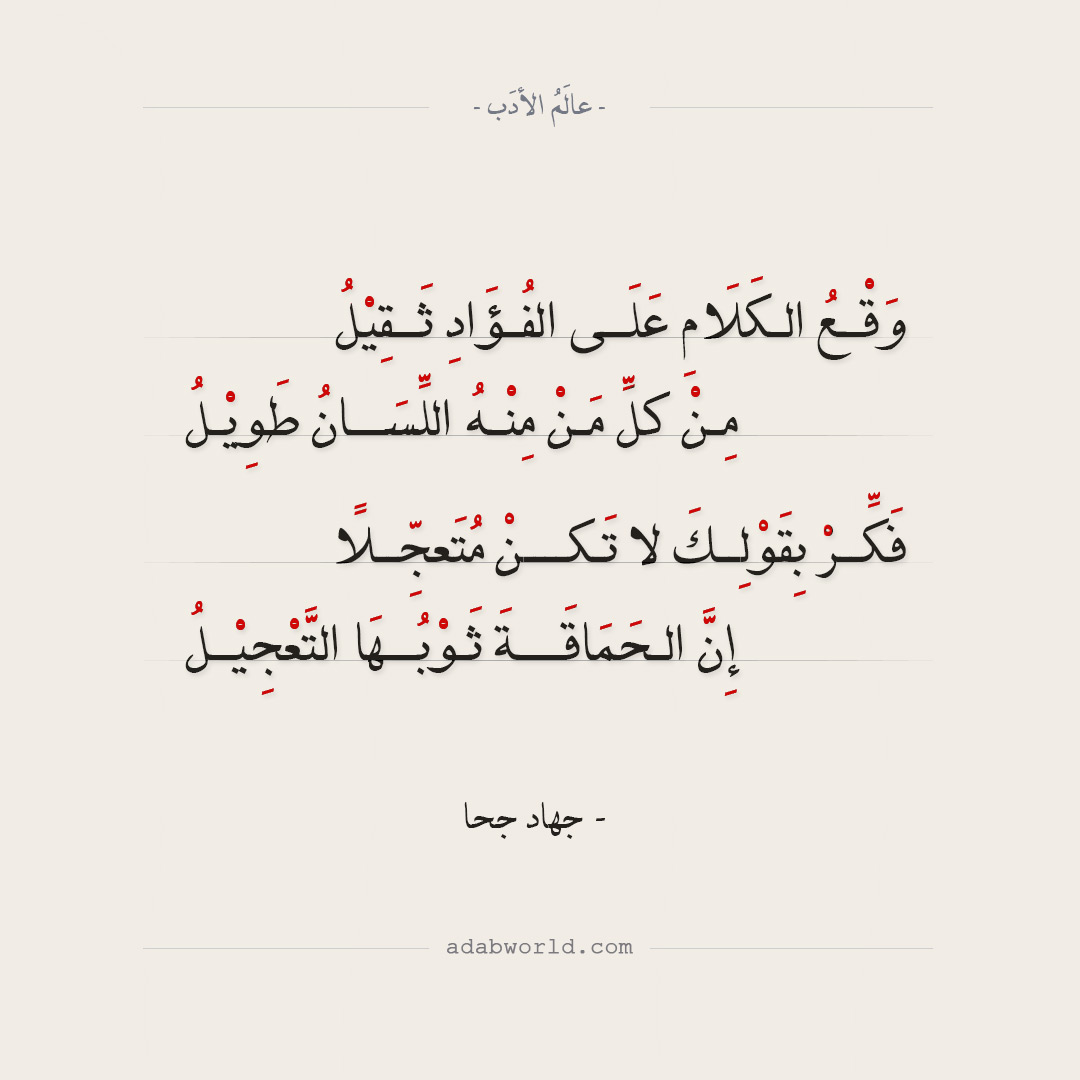 - عالَمُ الأدَب -
وَقْـعُ الـكَلَام عَلَـى الفُـؤَادِ ثَـقِيْلُ
مِـنْ َكلِّ مَـنْ مِنْـهُ اللِّسَـانُ طَوِيْـلُ
فَكِّـرْ بِقَوْلِـكَ لا تَـكـنْ مُتَعجِّـلًا
إِنَّ الـحَمَاقَـةَ ثَـوْبُـهَا التَّعْجِيْـلُ
- جهاد جحا
adabworld.com